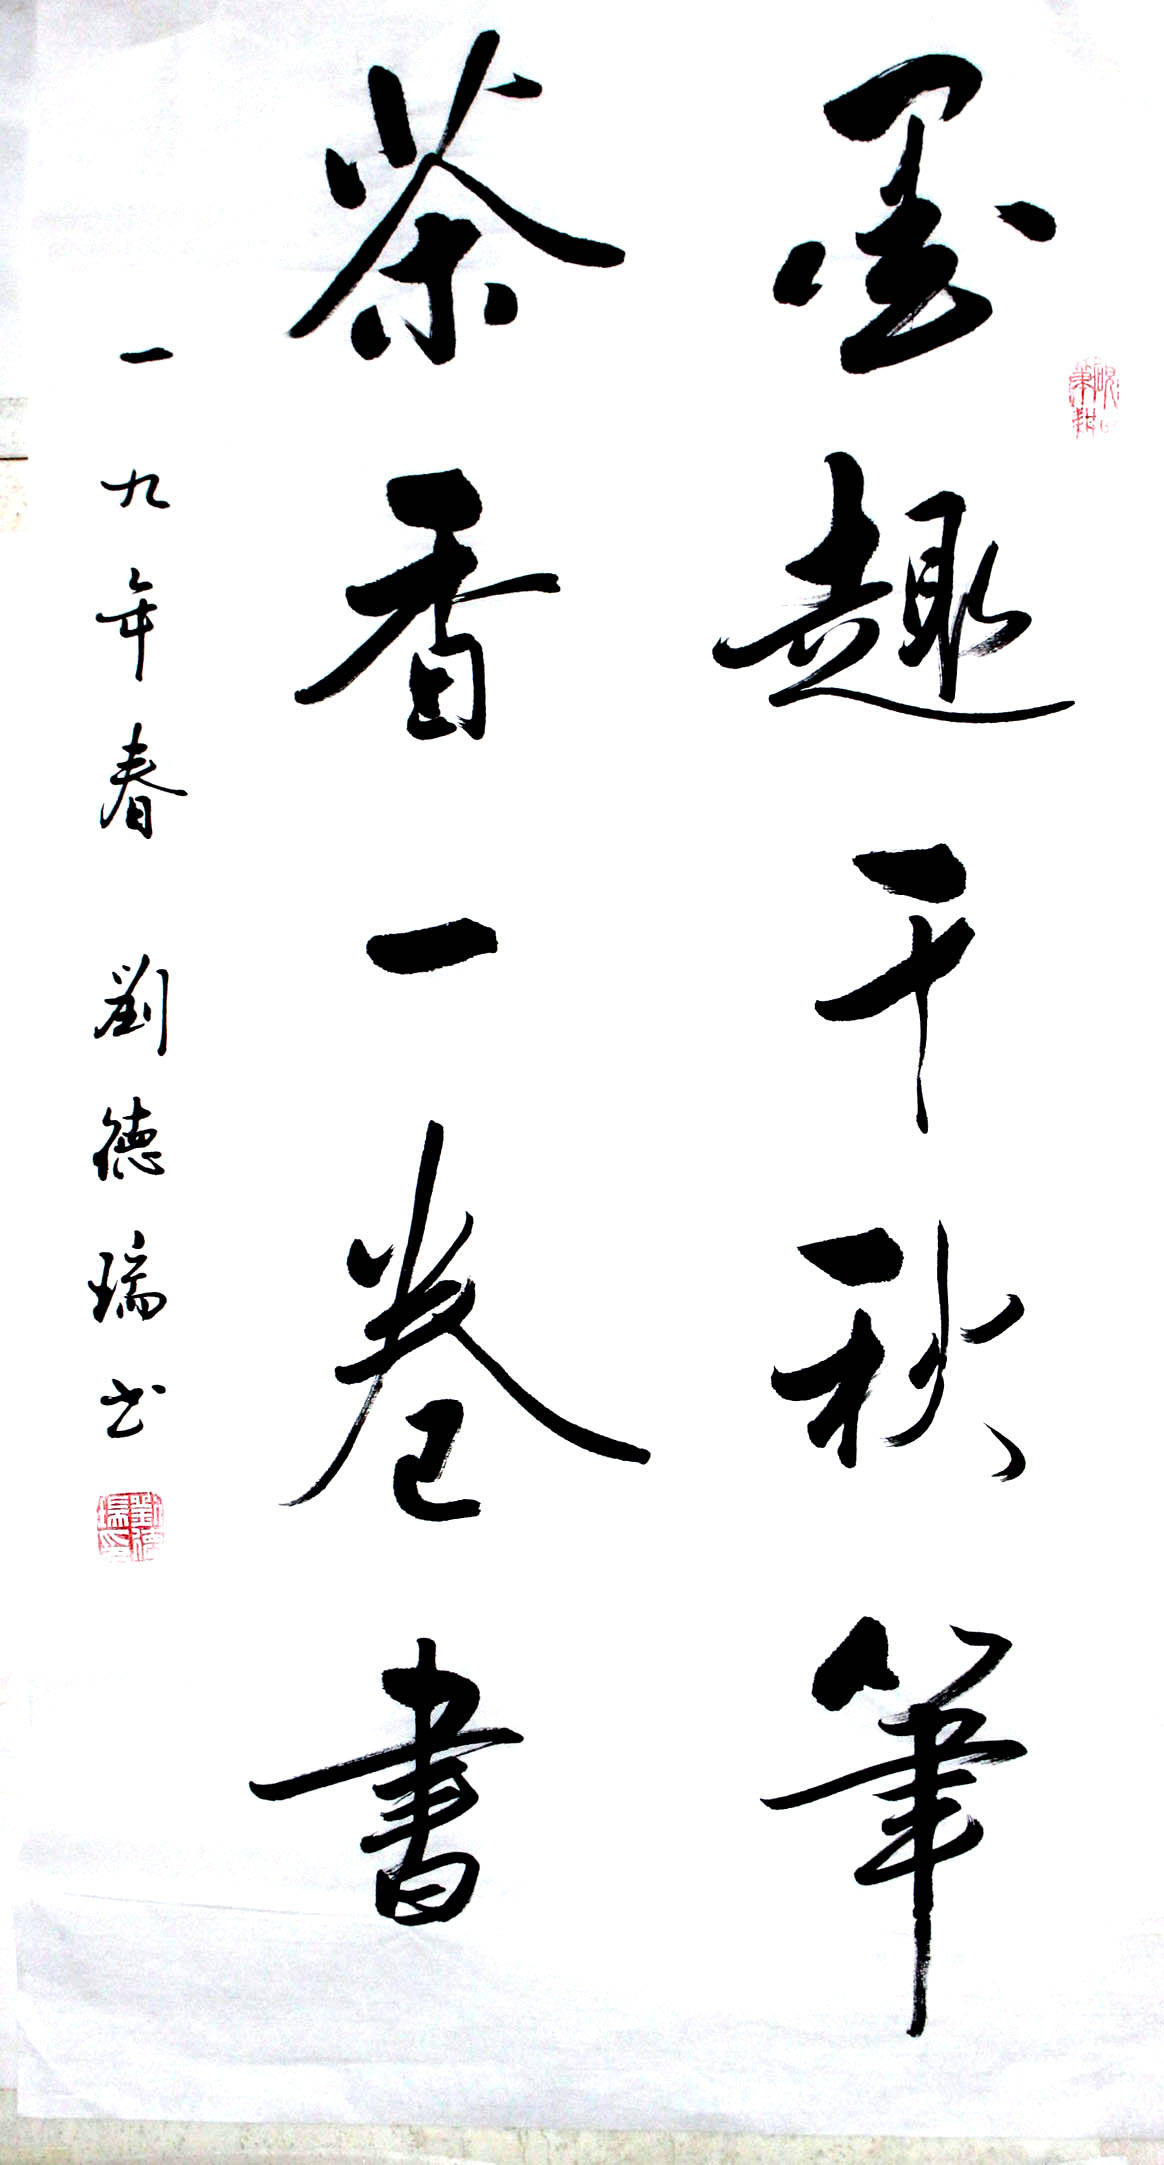 墨趣千秋筆
茶香一卷書
一九年春 劉德瑞书
劉德瑞印